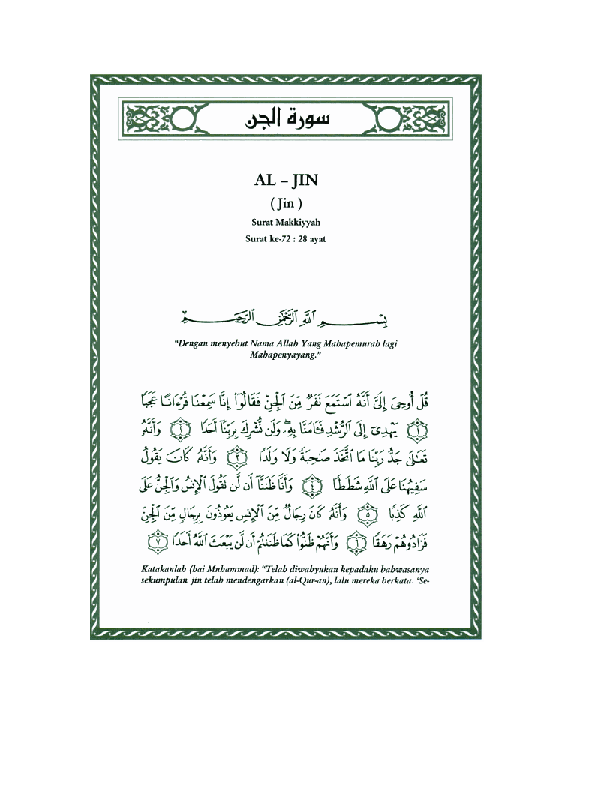 سورة الجن
AL – JIN
( Jin )
Surat Makkiyyah
Surat ke-72 : 28 ayat
بِسْمِ اللَّهِ الرَّحْمَٰنِ الرَّحِيمِ
"Dengan menyebut Nama Allah Yang Mahapemurah lagi
Mahapenyayang."
قُلْ أُوحِيَ إِلَيَّ أَنَّهُ اسْتَمَعَ نَفَرٌ مِّنَ الْجِنِّ فَقَالُوا إِنَّا سَمِعْنَا قُرْآنًا عَجَبًا
﴿١﴾ يَهْدِي إِلَى الرُّشْدِ فَآمَنَّا بِهِ وَلَن نُّشْرِكَ بِرَبِّنَا أَحَدًا ﴿٢﴾ وَأَنَّهُ
تَعَالَىٰ جَدُّ رَبِّنَا مَا اتَّخَذَ صَاحِبَةً وَلَا وَلَدًا ﴿٣﴾ وَأَنَّهُ كَانَ يَقُولُ
سَفِيهُنَا عَلَى اللَّهِ شَطَطًا ﴿٤﴾ وَأَنَّا ظَنَنَّا أَن لَّن تَقُولَ الْإِنسُ وَالْجِنُّ عَلَى
اللَّهِ كَذِبًا ﴿٥﴾ وَأَنَّهُ كَانَ رِجَالٌ مِّنَ الْإِنسِ يَعُوذُونَ بِرِجَالٍ مِّنَ الْجِنِّ
فَزَادُوهُمْ رَهَقًا ﴿٦﴾ وَأَنَّهُمْ ظَنُّوا كَمَا ظَنَنتُمْ أَن لَّن يَبْعَثَ اللَّهُ أَحَدًا ﴿٧﴾
Katakanlah (hai Muhammad): "Telah diwahyukan kepadaku bahwasanya
sekumpulan jin telah mendengarkan (al-Qur-an), lalu mereka berkata: 'Se-